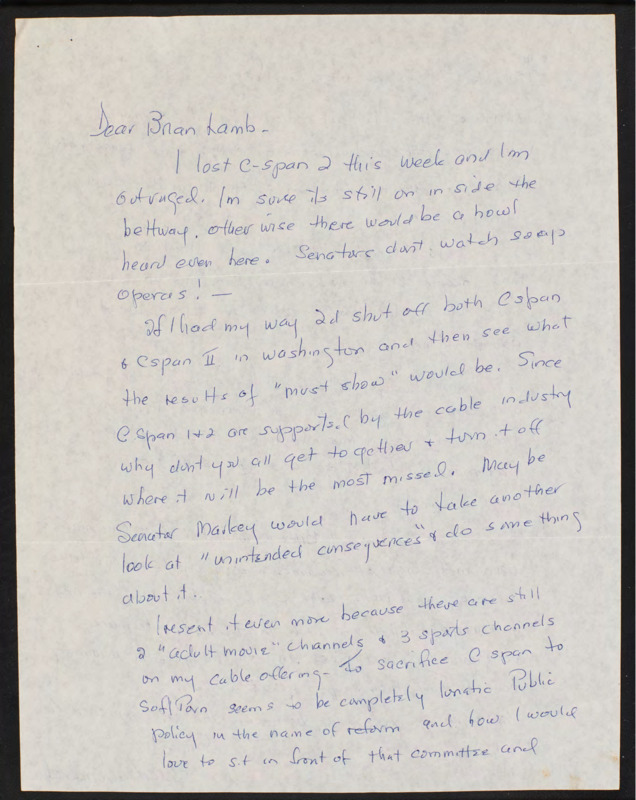 Dear Brian Lamb -
I lost C-span 2 this week and Im
outraged. Im sure its still on in side the
beltway. other wise there would be a howl
heard even here. Senators dont watch soap
operas! —
If I had my way Id shut off both Cspan
& Cspan II in washington and then see what
the results of "must show" would be. Since
C Span 1+2 are supported by the cable industry
why dont you all get together & turn it off
where it will be the most missed. May be
Senator Markey would have to take another
look at "unintended consequences" & do some thing
about it.
I resent it even more because there are still
2 "adult movie" channels & 3 sports channels
on my cable offering - To sacrifice C span to
Soft Porn seems to be completely lunatic Public
policy in the name of reform and how I would
love to sit in front of that committee and